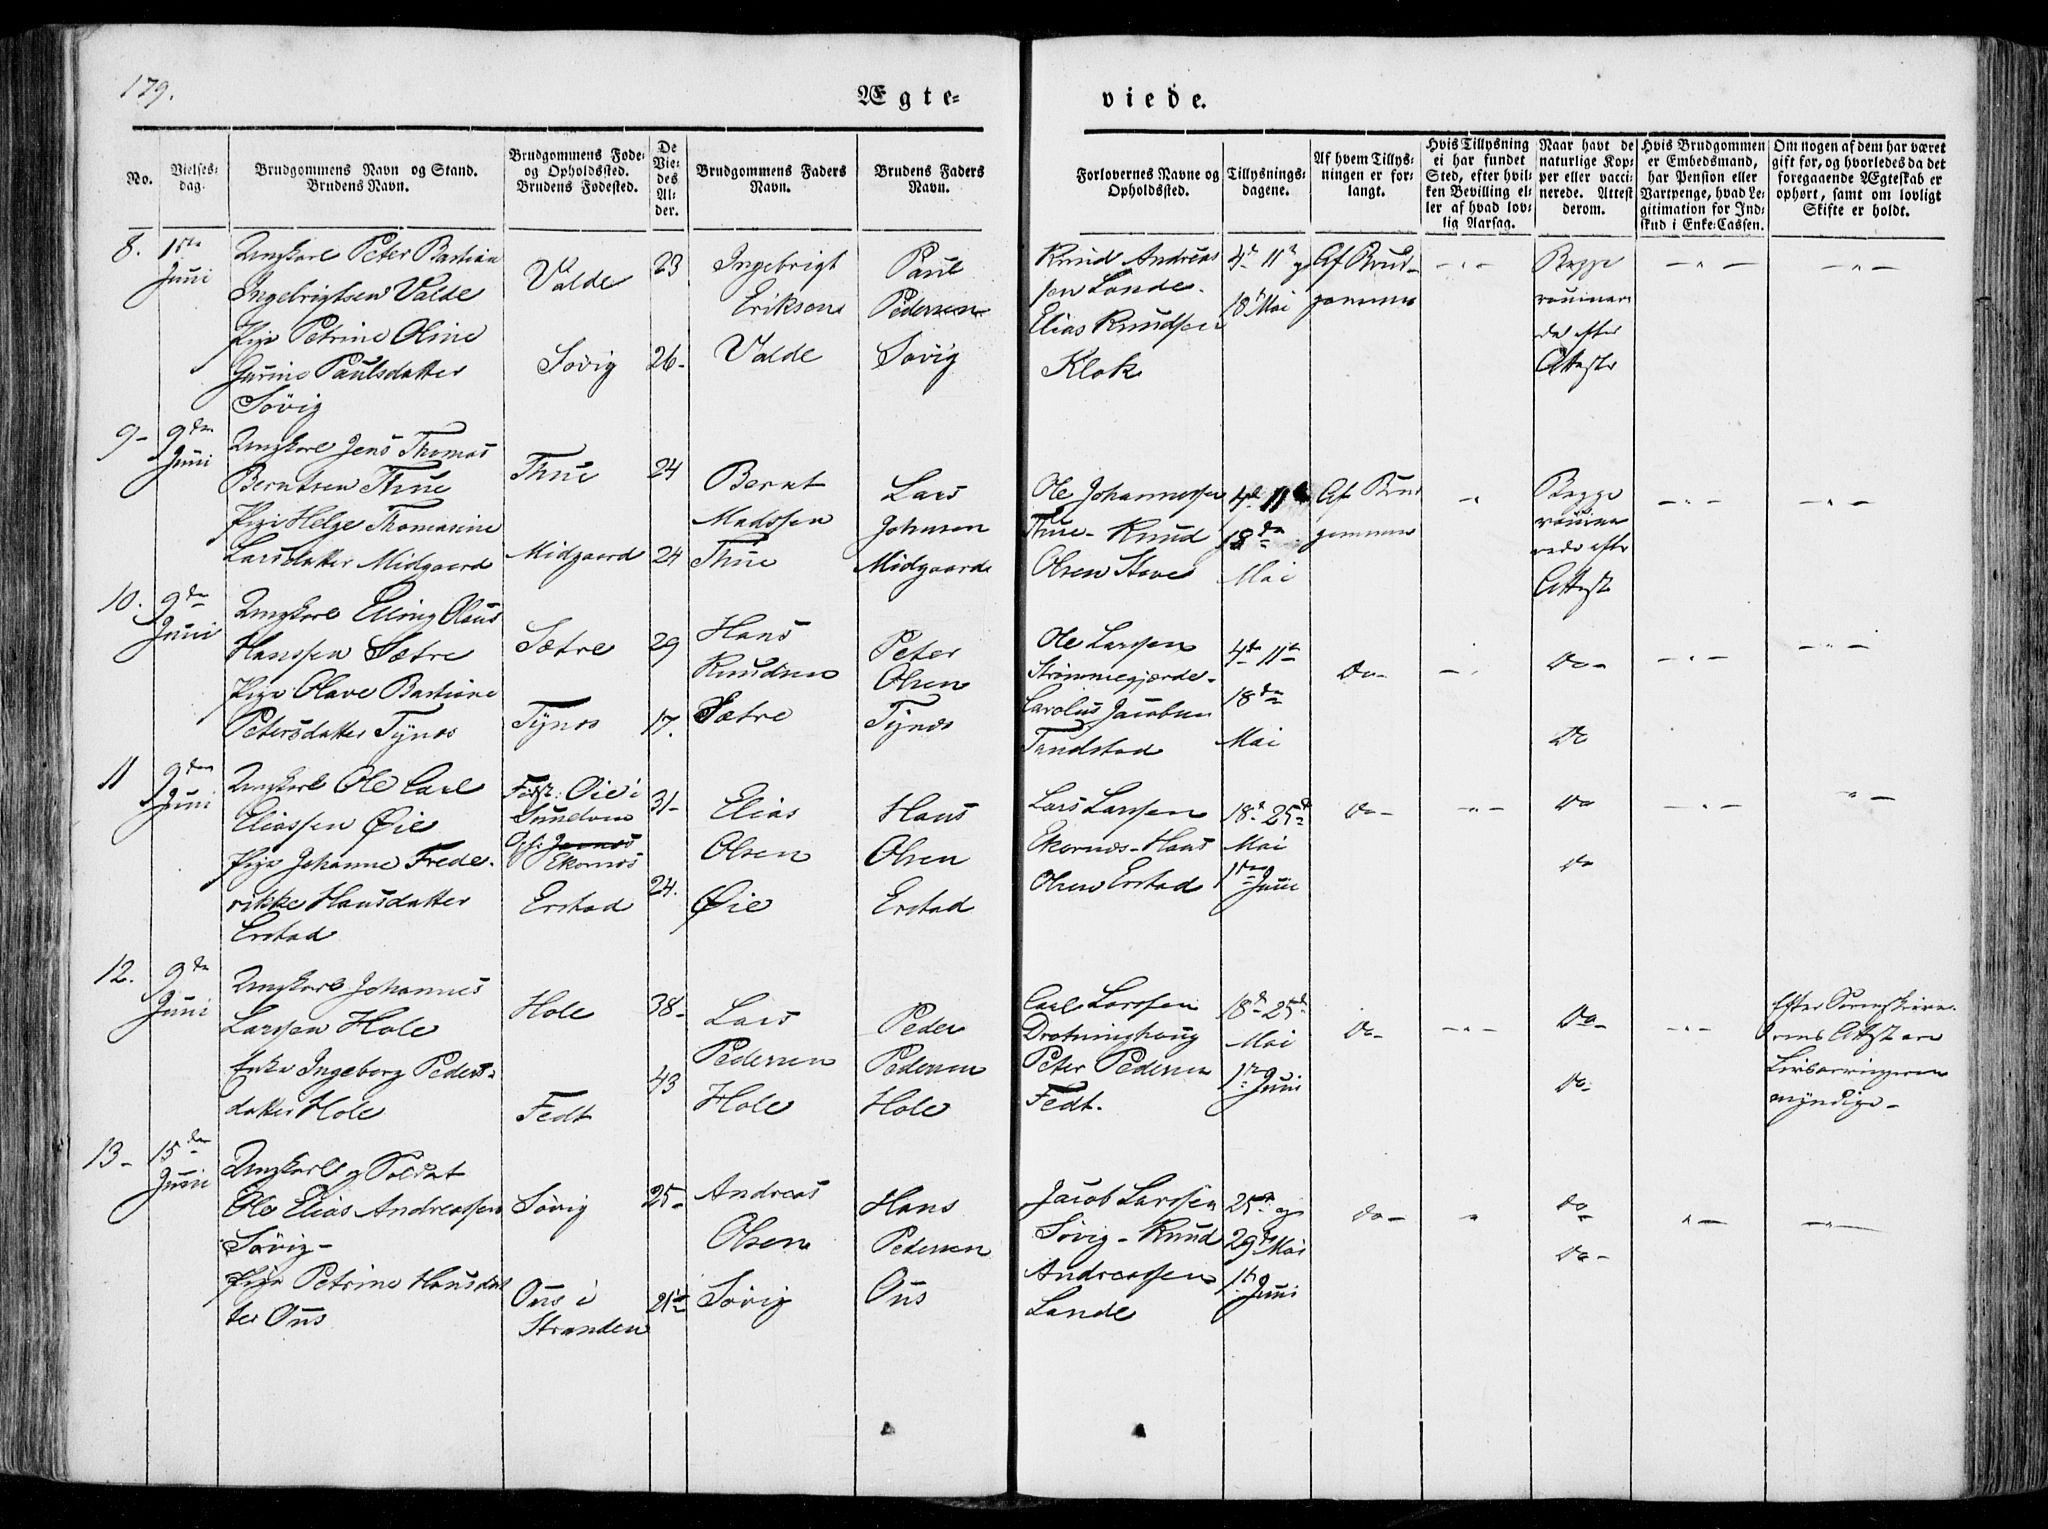 179.
Ægte=
viede.
No.
Vielses=
dag.
Brudgommens Navn og Stand.
Brudens Navn.
Brudgommens Føde=
og Opholdssted.
Brudens Fødested.
De
Vie=
des
Al=
der.
Brudgommens Faders
Navn.
Brudens Faders
Navn.
Forlovernes Navne og
Opholdssted.
Tillysnings=
dagene.
Af hvem Tillys=
ningen er for=
langt.
Hvis Tillysning
ei har fundet
Sted, efter hvil=
ken Bevilling el=
ler af hvad lov=
lig Aarsag.
Naar havt de
naturlige Kop=
per eller vacci=
nerede. Attest
derom.
Hvis Brudgommen
er Embedsmand,
har Pension eller
Vartpenge, hvad Le=
gitimation for Ind=
skud i Enke=Cassen.
Om nogen af dem har været
gift før, og hvorledes da det
foregaaende Ægteskab er
ophørt, samt om lovligt
Skifte er holdt.
8.
1ste
Juni
Ungkarl Peter Bastian
Ingebrigtsen Valde
Pige Petrine Oline
Gurine Paulsdatter
Søvig
Valde
Søvig
23
26-
Ingebrigt
Eriksen
Valde
Paul
Pedersen
Søvig
Knud Andreas
sen Lande-
Elias Knudsen
Klok
4de 11te og
18de Mai
Af Brud-
gommen
Begge
Attester
9-
9den
Juni
Ungkarl Jens Thomas
Berntsen Thue
Pige Helge Thomasine
Larsdatter Midgaard
Thue
Midgaard
24
24
Bernt
Madssen
Thue
Lars
Johnsen
Midgaard
Ole Johannessen
Thue- Knud
Olsen Stave
4de 11te
18de
Mai
Af Brud
gommen
Begge
efter
Attest
10.
9de
Juni
Ungkarl Elling Olaus
Hanssen Sætre
Pige Olave Bastiane
Petersdatter Tynes
Sætre
Tynes
29
17.
Hans
Knudsen
Sætre
Peter
Olsen
Tynes
Ole Larssen
Strømmegjærde-
Carolus Jacobsen
Tandstad
4de 11te
18de
Mai
Do-
Do-
Do
11
9den
Juni
Ungkarl Ole Carl
Eliassen Øie
Pige Johanne Frede-
rikke Hansdatter
Erstad
Født: Øie i
Sundelven
Opf: Jarnes
Ekornæs
Erstad
31-
24.
Elias
Olsen
Øie
Hans
Olsen
Erstad
Lars Larssen
Ekornæs- Hans
Olsen Erstad
18de 25de
Mai
1ste Juni
Do-
Do
do
12.
9de
Juni
Ungkarl Johannes
Larssen Hole
Enke Ingeborg Peders-
datter Hole
Hole
Fedt
38-
43
Lars
Pedersen
Hole
Peder
Pedersen
Hole
Carl Larssen
Drotninghoug
Peter Pedersen
Fedt.
18de 25de
Mai
1ste Juni
Do-
Do-
Do-
Efter Sorenskrive-
rens Attest ere
Livsarvingerne
myndige-
13-
15den
Juni
Ungkarl og Soldat
Ole Elias Andreassen
Søvig-
Pige Petrine Hansdat
ter Ous
Søvig
Ous i
Stranden
25-
21
Andreas
Olsen
Søvig
Hans
Pedersen
Ous
Jacob Larssen
Søvig- Knud
Andreassen
Lande
25de og
29de Mai
1ste Juni
do-
do
do-